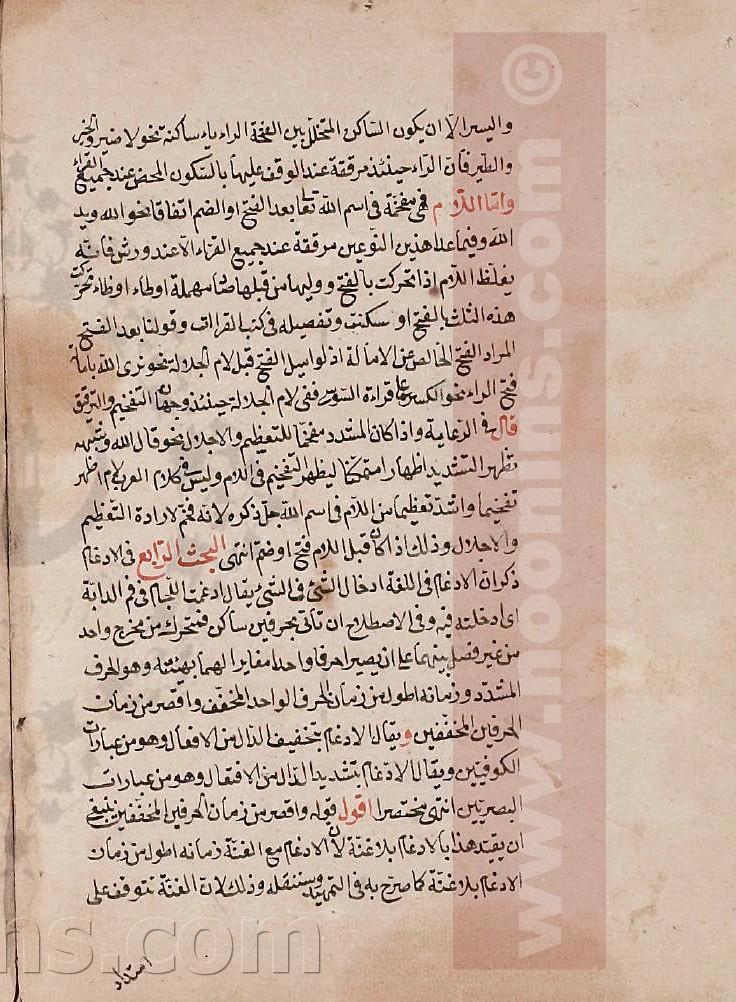 واليسر الا ان يكون الساكن المتخلل بين الفتحة الراء ياء ساكنة نحو لا ضير والخير
والطير فان الراء حينئذ مرققة عند الوقف عليها بالسكون المحض عند جميع القراء
واما اللام فهى مفخمة فى اسم الله تعا بعد الفتح او الضم اتفاقا نحو الله ويد
الله وفيما عدا هذين النوعين مرققة عند جميع القراء الا عند ورش فانه
يغلظ اللام اذا تحركت بالفتح ووليها من قبلها صاد مهملة او طاء او ظاء تحركت
هذه الثلث بالفتح او سكنت وتفصيله فى كتب القراات وقولنا بعد الفتح
المراد الفتح الخالص عن الامالة اذ لو اميل الفتح قبل لام الجلالة نحو نرى الله بامالة
فتح الراء نحو الكسرة على قراءة السوسى ففى لام الجلالة حينئذ وجهان التفخيم والترقيق
قال فى الرعاية واذا كان المشدد مفخما للتعظيم والاجلال نحو قال الله وشبهه
تظهر التشديد اظهارا متمكنا ليظهر التفخيم فى اللام وليس فى كلام العرب لام اظهر
تفخيما واشد تعظيما من اللام فى اسم الله جل ذكره لانه فخم لارادة التعظيم
والاجلال وذلك اذا كان قبل اللام فتح او ضم انتهى البحث الرابع فى الادغام
ذكر ان الادغام فى اللغة ادخال الشئ فى الشئ يقال ادغمت اللجام فى فم الدابة
اى ادخلته فيه وفى الاصطلاح ان تأتى بحرفين ساكن فمتحرك من مخرج واحد
من غير فصل بينهما على ان يصيرا حرفا واحدا مغايرا لهما بهيئته وهو الحرف
المشدد وزمانه اطول من زمان الحرف الواحد المخفف واقصر من زمان
الحرفين المخففين ويقال الادغام بتخفيف الدال من الافعال وهو من عبارات
الكوفيين ويقال الادغام بتشديد الدال من الافتعال وهو من عبارات
البصريين انتهى مختصرا اقول قوله واقصر من زمان الحرفين المخففين ينبغى
ان يقيد هذا بالادغام بلا غنة لان الادغام مع الغنة زمانه اطول من زمان
الادغام بلا غنة كما صرح به فى التمهيد وسننقله وذلك لان الغنة تتوقف على
امتداد
www.noorlns.com ©
ns.com